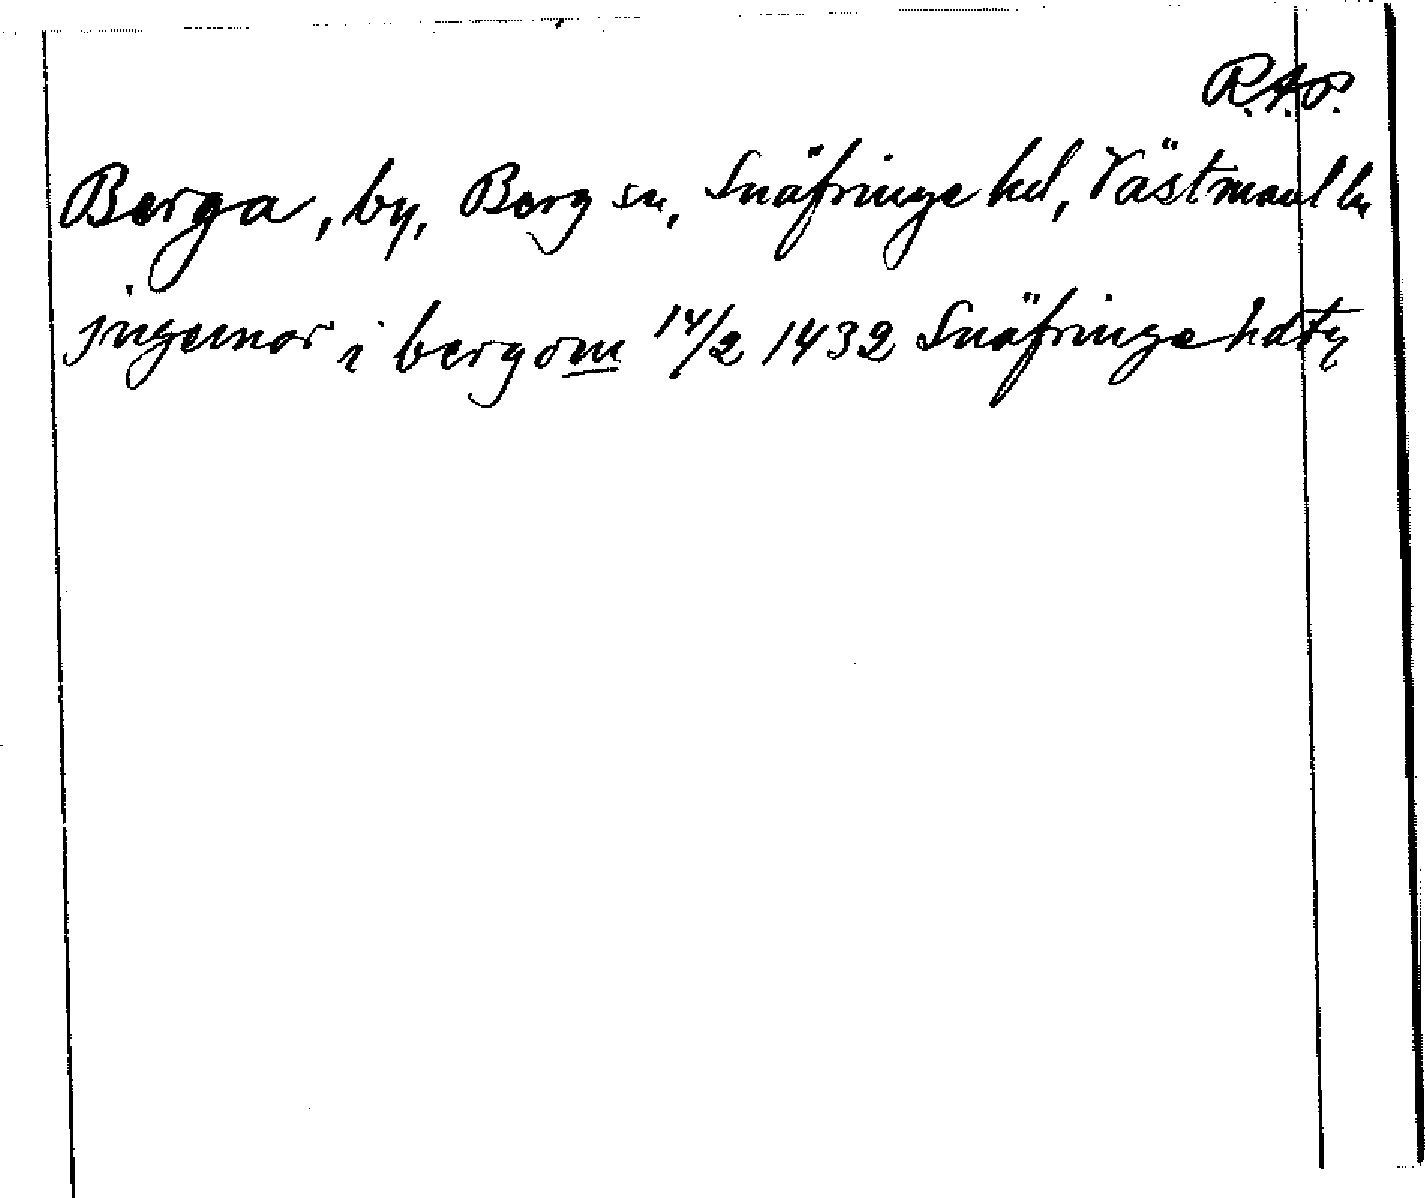 R.A.P.
Berga, by, Berg sn, Snäfringe hd, Västmanl ln
jngemar i bergom 14/2 1432 Snäfringe hdtg